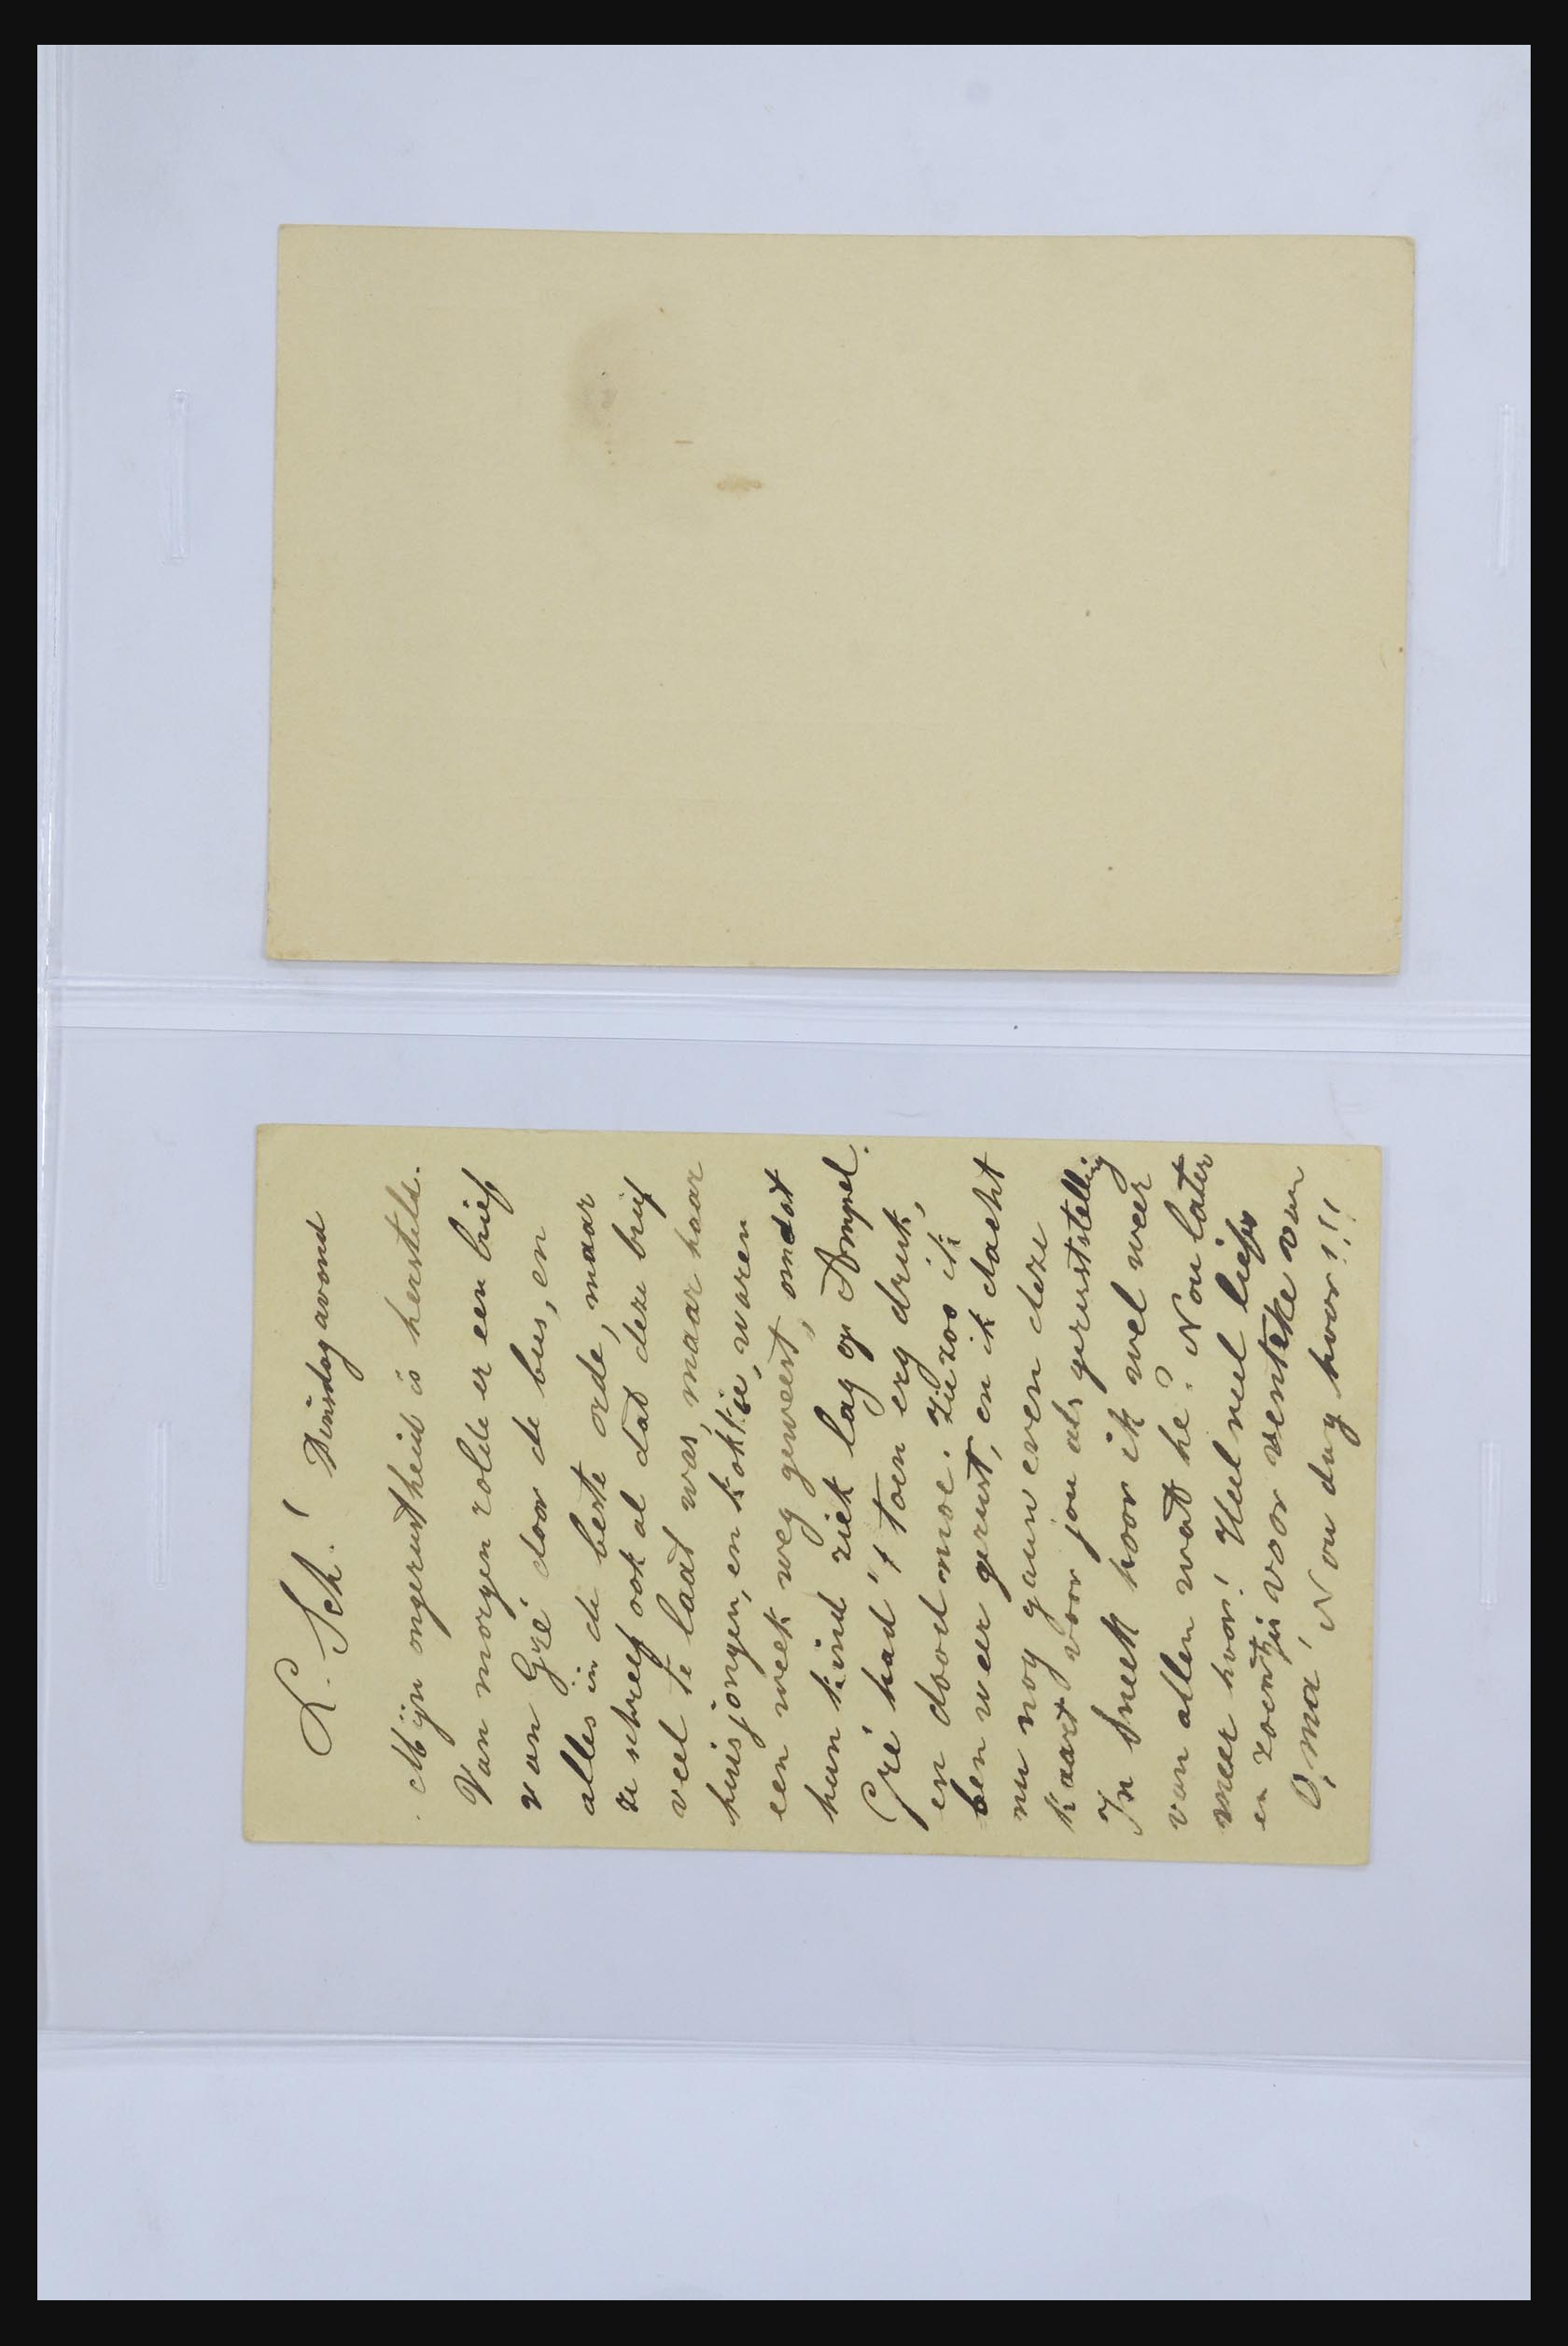 L. Sch! Dinsdagavond
Mijn ongerustheid is hersteld.
Van morgen rolde er een brief
van Gré door de bus, en
alles in de beste orde, maar
ze schreef ook al dat deze brief
veel te laat was, maar haar
huisjongen, en kokkie, waren
een week weg geweest, omdat
hun kind ziek lag op Ampel.
Gré had 't toen erg druk,
en dood moe. Ziezoo ik
ben weer gerust, en ik dacht
nu nog gauw even deze
kaart voor jou als geruststelling
In Sneek hoor ik wel weer
van allen wat he? Nou later
meer hoor! Heel veel liefs
en zoentjes voor venteke van
O,ma! Nou dag hoor!!!